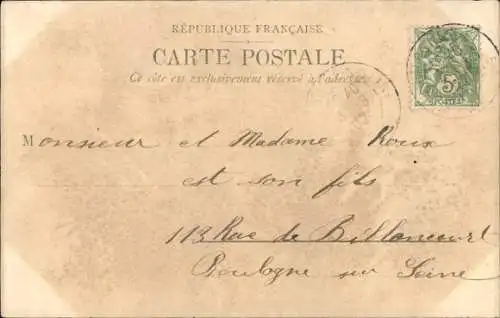 RÉPUBLIQUE FRANÇAISE
CARTE POSTALE
Ce côté est exclusivement réservé à l'adresse
5
Monsieur et Madame Roux
est son fils
113 Rue de Billancourt
Boulogne sur Seine